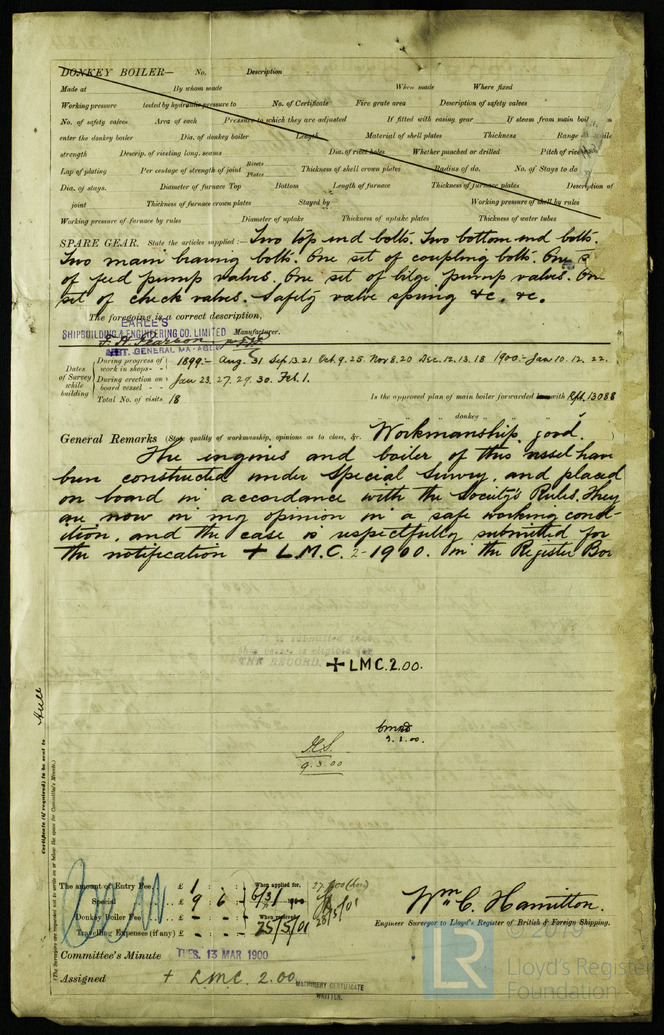 DONKEY BOILER— No. Description
Made at By whom made When made Where fixed
Working pressure tested by hydraulic pressure to No. of Certificate Fire grate area Description of safety valves
No. of safety valves Area of each Pressure to which they are adjusted If fitted with easing gear If steam from main boil
enter the donkey boiler Dia. of donkey boiler Length Material of shell plates Thickness Range
strength Descrip. of riveting long. seams Dia. of rivet holes Whether punched or drilled Pitch of rivet
Lap of plating Per centage of strength of joint Rivets Plates Thickness of shell crown plates Radius of do. No. of Stays to do
Dia. of stays. Diameter of furnace Top Bottom Length of furnace Thickness of furnace plates Description of
joint Thickness of furnace crown plates Stayed by Working pressure of shell by rules
Working pressure of furnace by rules Diameter of uptake Thickness of uptake plates Thickness of water tubes
SPARE GEAR. State the articles supplied:— Two top end bolts. Two bottom end bolts.
Two main bearing bolts. One set of coupling bolts. One s
of feed pump valves. One set of bilge pump valves. On
set of check valves. Safety valve spring &c. &c.
The foregoing is a correct description,
EARLE'S
SHIPBUILDING & ENGINEERING CO. LIMITED Manufacturer.
Dates of Survey while building
During progress of work in shops-- 1899:- Aug. 31 Sep. 13. 21 Oct. 9. 25 Nov 8. 20 Dec. 12. 13. 18 1900:- Jan 10. 12. 22.
During erection on board vessel --- Jan 23. 27. 29. 30. Feb. 1.
Total No. of visits 18 Is the approved plan of main boiler forwarded with Rpt. 13088
donkey " "
General Remarks (State quality of workmanship, opinions as to class, &c. Workmanship good.
The engines and boiler of this vessel have
been constructed under Special Survey, and placed
on board in accordance with the Society's Rules. They
are now in my opinion in a safe working cond-
ition, and the case is respectfully submitted for
the notification + L.M.C. 2-1900. in the Register Boo
It is submitted that
this vessel is eligible for
THE RECORD. + LMC. 2.00.
9.3.00
Certificate (if required) to be sent to Hull
(The Surveyors are requested not to write on or below the space for Committee's Minute.)
The amount of Entry Fee. . £ 1 : : When applied for.
Special . . . . £ 9 : 6 :
Donkey Boiler Fee . . . . £ - : - :
Travelling Expenses (if any) £ - : - : 25/5/01
Wm C. Hamilton.
Engineer Surveyor to Lloyd's Register of British & Foreign Shipping.
Committee's Minute TUES. 13 MAR 1900
Assigned + L.M.C. 2.00
MACHINERY CERTIFICATE
WRITTEN.
LR
© 2019
Lloyd's Register
Foundation